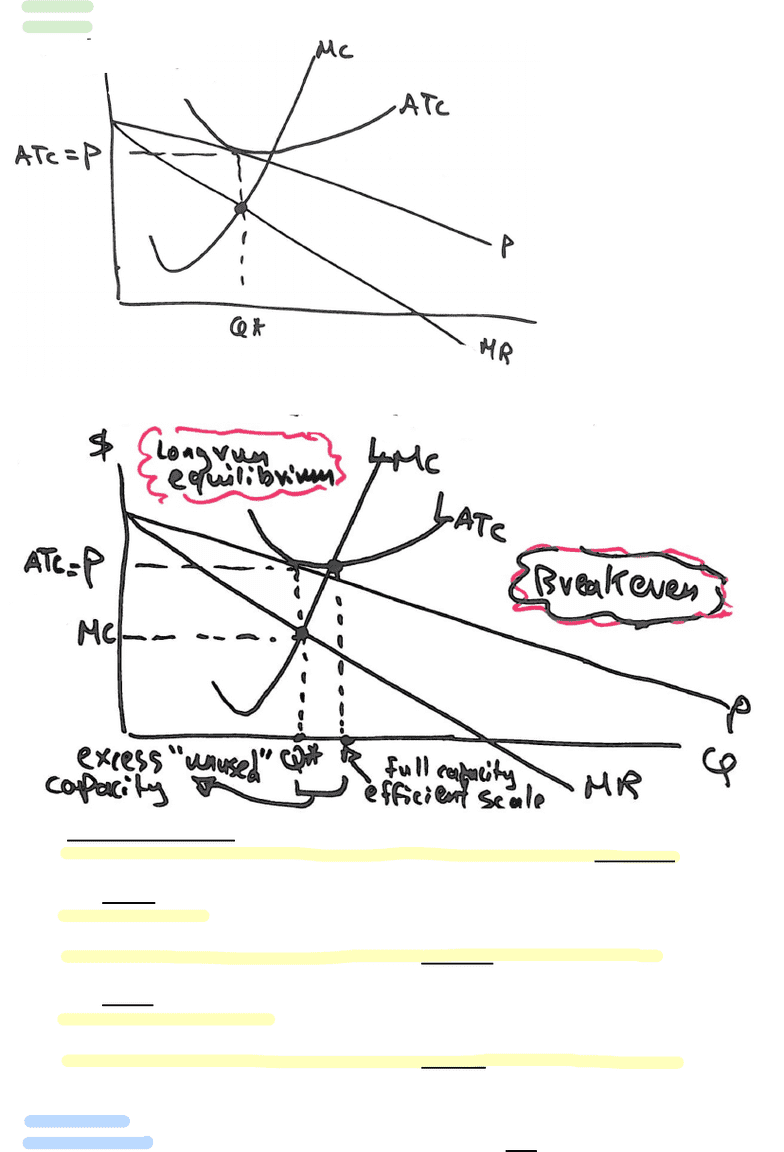 MC
ATC
ATC = P
P
Q*
MR
$
Long run
equilibrium
LMC
LATC
ATC = P
Breakeven
MC
P
excess "unused" Q*
capacity
full capacity
efficient scale
MR
Q